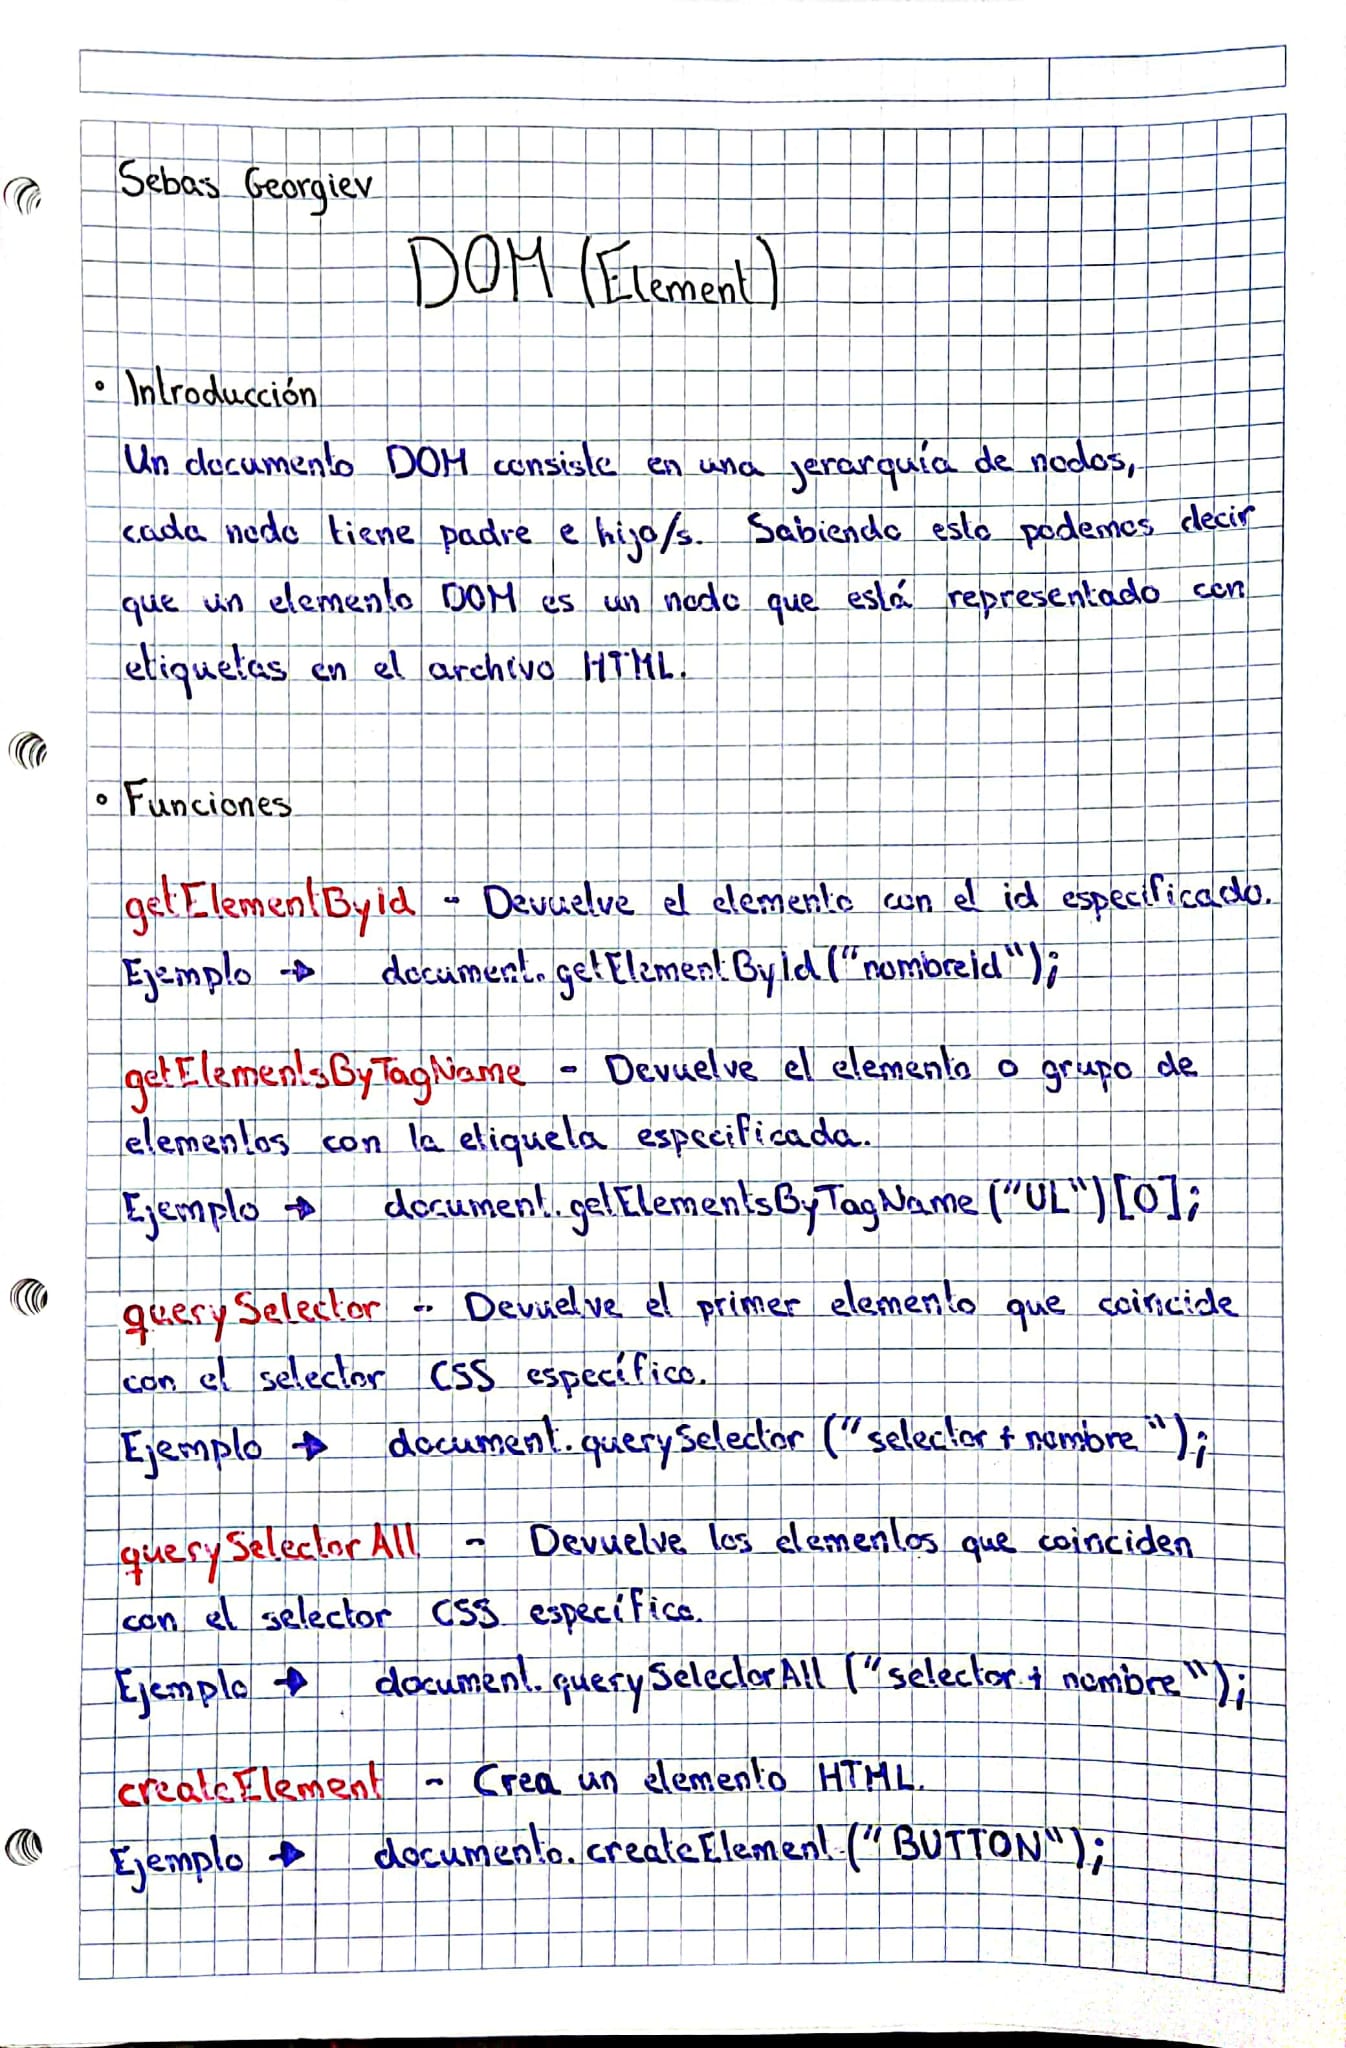 Sebas Georgiev
DOM (Element)
• Introducción
Un documento DOM consiste en una jerarquía de nodos,
cada nodo tiene padre e hijo/s. Sabiendo esto podemos decir
que un elemento DOM es un nodo que está representado con
etiquetas en el archivo HTML.
• Funciones
getElementByid - Devuelve el elemento con el id especificado.
Ejemplo → document.getElementByid("nombreid");
getElementsByTagName - Devuelve el elemento o grupo de
elementos con la etiqueta especificada.
Ejemplo → document.getElementsByTagName("UL")[0];
querySelector - Devuelve el primer elemento que coincide
con el selector CSS específico.
Ejemplo → document.querySelector ("selector + nombre");
querySelectorAll - Devuelve los elementos que coinciden
con el selector CSS específico.
Ejemplo → document.querySelectorAll ("selector + nombre");
createElement - Crea un elemento HTML.
Ejemplo → documento.createElement ("BUTTON");